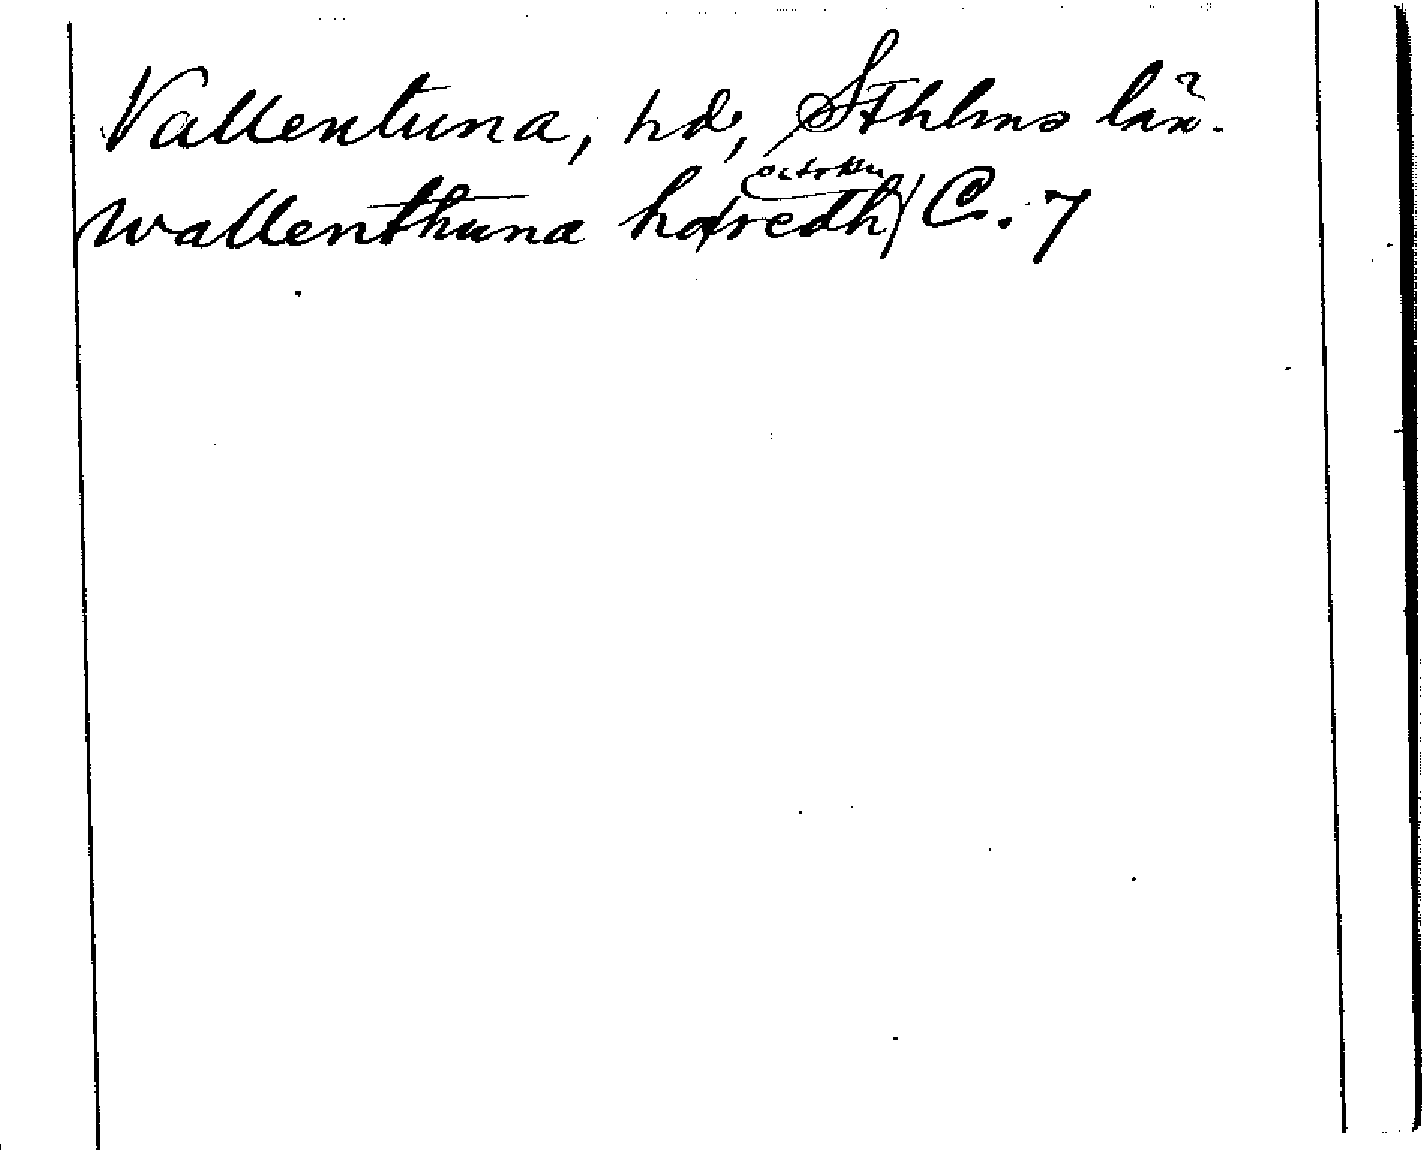 Vallentuna, hd, Sthlms län.
Wallenthuna haredh C. 7